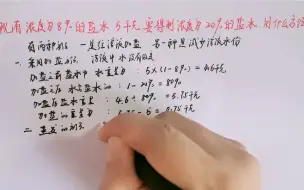 现有浓度为8%的盐水5千克,要得到浓度为20%的盐水,用什么方法
有两种方法 一是往溶液加盐 另一种是减少溶液水份
一 采用加盐方法 溶液中水没有改变
加盐之前盐水中水重量为:5×(1-8%)=4.6千克
加盐之后水占盐水的:1-20%=80%
加盐后盐水重量为:4.6÷80%=5.75千克
加盐的重量为:5.75-5=0.75千克
二